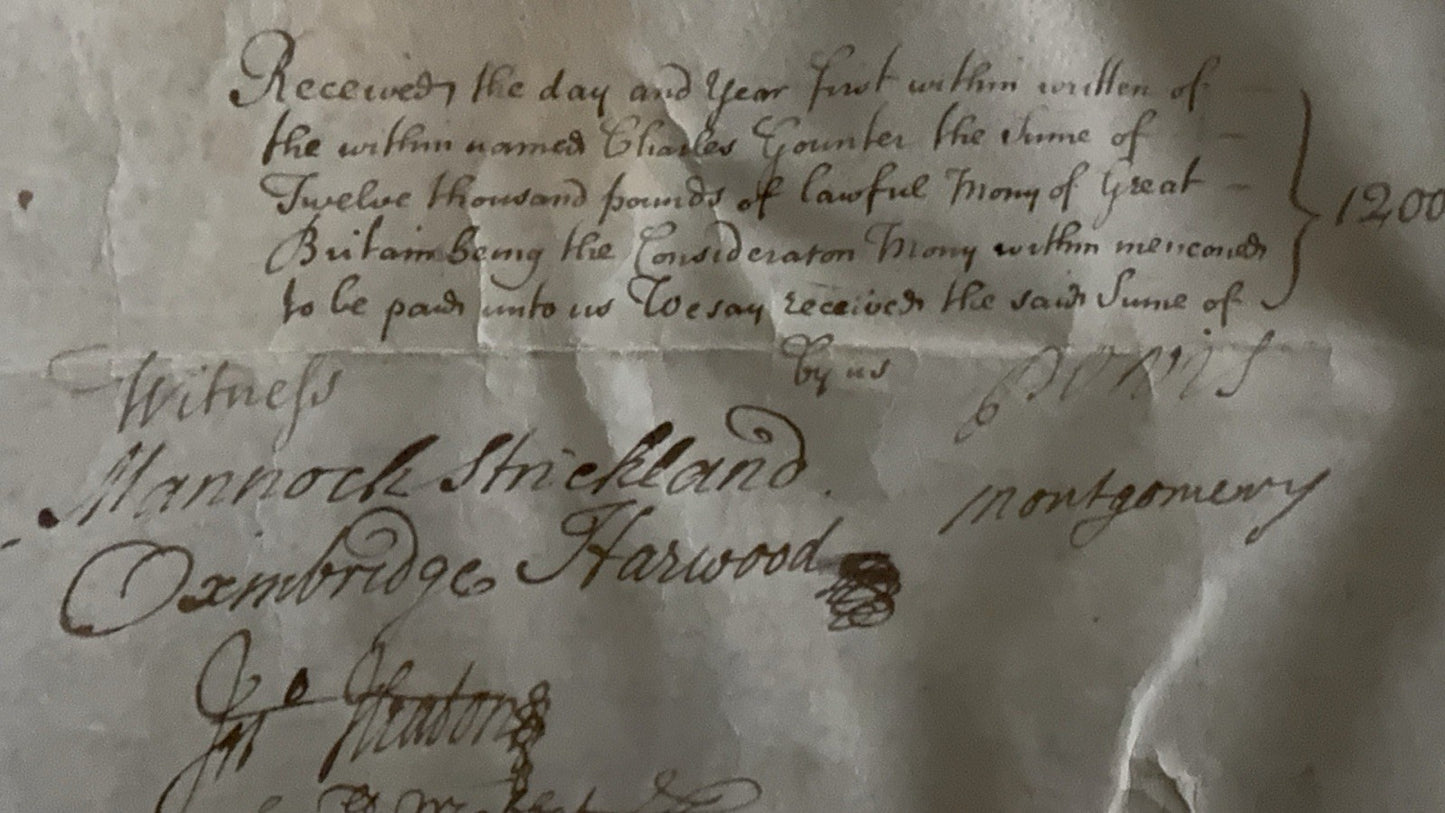 Received the day and Year first within written of
the within named Charles Gounter the Sume of
Twelve thousand pounds of lawful Mony of Great
Britain being the Consideraton Mony within menconed
to be paid unto us We say received the said Sume of
1200
by us
Witness
Powis
Mannock Strickland
Montgomery
Oxmbridge Harwood